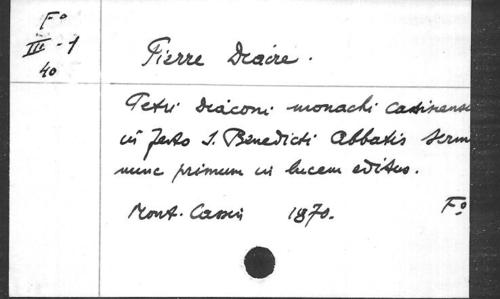 Fº
III - 1
40
Pierre Diacre.
Petri Diaconi monachi Cassinens
in festo S. Benedicti Abbatis Serm
nunc primum in lucem editus.
Mont-Cassin 1870. Fº